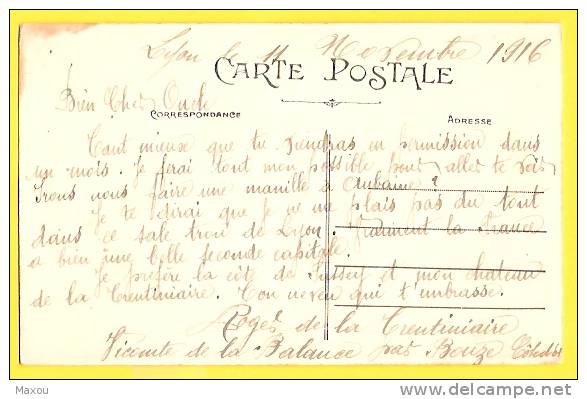 Lyon le 11 Novembre 1916
CARTE POSTALE
Bien Cher Oncle
CORRESPONDANCE
ADRESSE
Tant mieux que tu viendras en permission dans
un mois. Je ferai tout mon possible pour aller te voir
Irons nous faire une manille à Aubaine ?
Je te dirai que je ne me plais pas du tout
dans ce sale trou de Lyon. Vraiment la France
a bien une belle seconde capitale.
Je préfère la côte de Jussey et mon chateau
de la Trentiniaire. Ton neveu qui t'embrasse.
Roger de la Trentiniaire
Vicomte de la Balance par Bouze Côte d'or
Maxou
www.delcampe.net